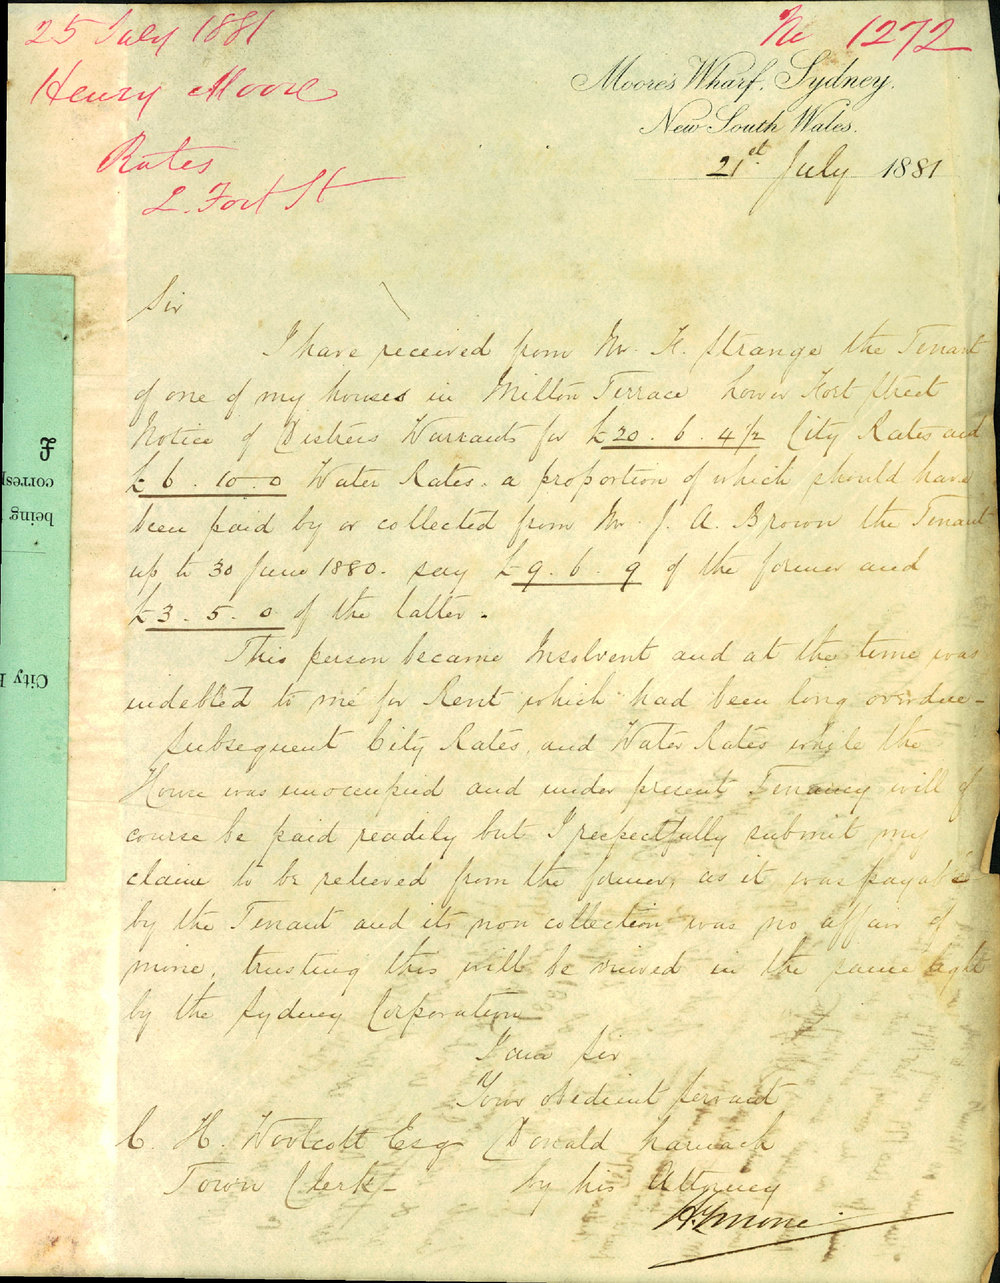 25 July 1881
Henry Moore
Rates
L. Fort St
No 1272
Moore's Wharf, Sydney.
New South Wales.
21st July 1881
Sir
I have received from Mr. H. Strange the Tenant
of one of my houses in Milton Terrace Lower Fort Street
Notice of Distress Warrants for £20. 6. 4½ City Rates and
£6. 10. 0 Water Rates. a proportion of which should have
been paid by or collected from Mr. J. A. Brown the Tenant
up to 30 June 1880. say £9. 6. 9 of the former and
£3. 5. 0 of the latter.
This person became Insolvent and at the time was
indebted to me for Rent which had been long overdue -
Subsequent City Rates, and Water Rates while the
House was unoccupied and under present Tenancy will of
course be paid readily but I respectfully submit my
claim to be relieved from the former, as it was payable
by the Tenant and its non collection was no affair of
mine, trusting this will be viewed in the same light
by the Sydney Corporation
I am Sir
Your obedient Servant
C. H. Woolcott Esq Donald Larnach
Town Clerk - by his Attorney
Hy Moore
£
corresp
being
City